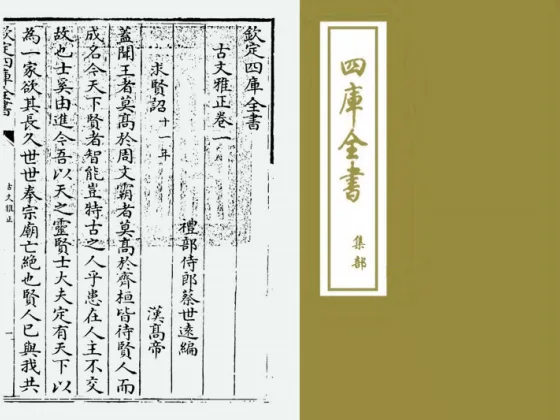 欽定四庫全書
古文雅正卷一
禮部侍郎蔡世遠編
求賢詔十一年 漢高帝
蓋聞王者莫髙於周文霸者莫髙於齊桓皆待賢人而
成名今天下賢者智能豈特古之人乎患在人主不交
故也士奚由進今吾以天之靈賢士大夫定有天下以
為一家欲其長久世世奉宗廟亡絶也賢人已與我共
欽定四庫全書
古文雅正
一
四庫全書
集部